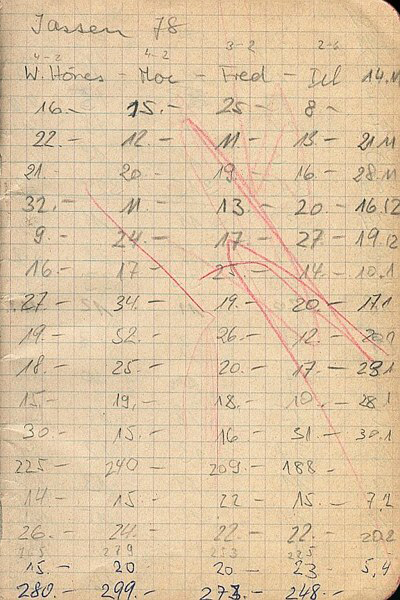 Jassen 78
4-2 4-2 3-2 2-6
W. Hönes - Moe - Fred - Del 14.11
16.- 15.- 25- 8-
22.- 12.- 11- 13.- 21.11
21. 20- 19.- 16.- 28.11
32.- 11.- 13- 20- 16.12
9.- 24.- 17.- 27- 19.12
16.- 17- 25.- 14- 10.1
27- 34.- 19.- 20- 17.1
19.- 52.- 26.- 12.-
18.- 25- 20.- 17.- 23.1
15.- 19.- 18.- 10.- 28.1
30- 15.- 16 31.- 30.1
225- 240 209.- 188-
14- 15 22 15.- 7.2
26.- 24.- 22.- 22.- 20.2
15- 20 20- 23- 5,4
280.- 299.- 273.- 248.-